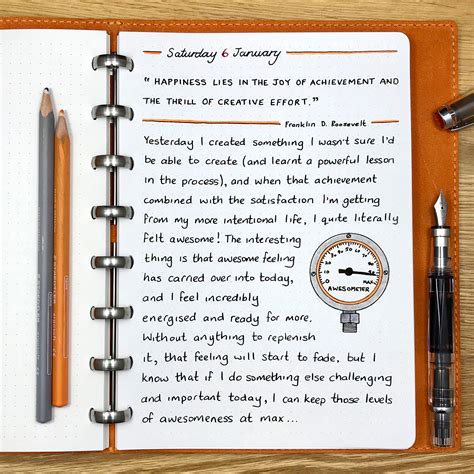 Saturday 6 January
"HAPPINESS LIES IN THE JOY OF ACHIEVEMENT AND
THE THRILL OF CREATIVE EFFORT."
Franklin D. Roosevelt
Yesterday I created something I wasn't sure I'd
be able to create (and learnt a powerful lesson
in the process), and when that achievement
combined with the satisfaction I'm getting
from my more intentional life, I quite literally
felt awesome! The interesting
thing is that awesome feeling
has carried over into today,
and I feel incredibly
energised and ready for more.
Without anything to replenish
it, that feeling will start to fade, but I
know that if I do something else challenging
and important today, I can keep those levels
of awesomeness at max...
MAX
AWESOMETER